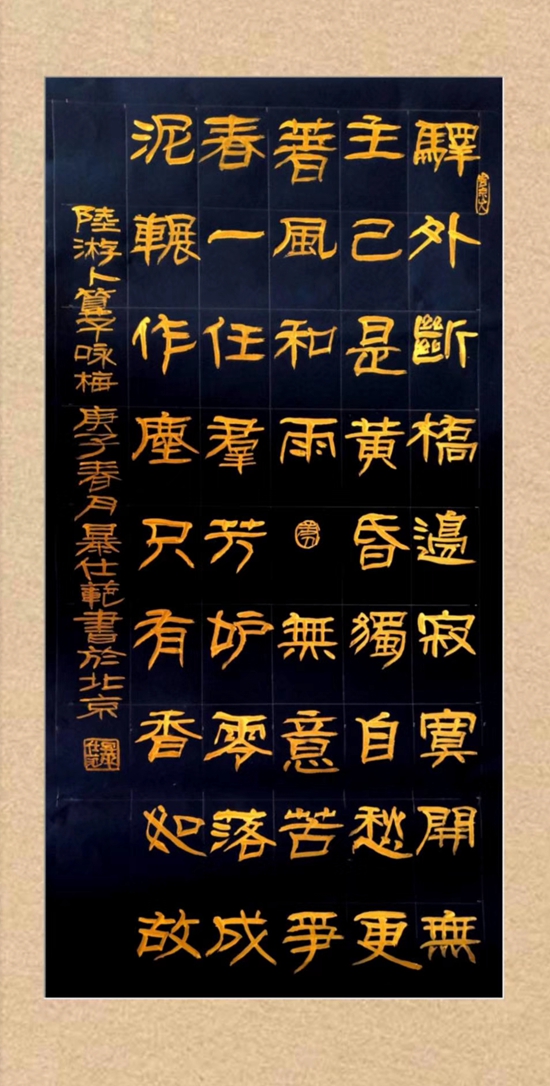 驛外斷橋邊寂寞開無
主己是黃昏獨自愁更
著風和雨無意苦爭
春一任羣芳妒零落成
泥輾作塵只有香如故
陸游卜算子咏梅 庚子春月暴仕範書於北京